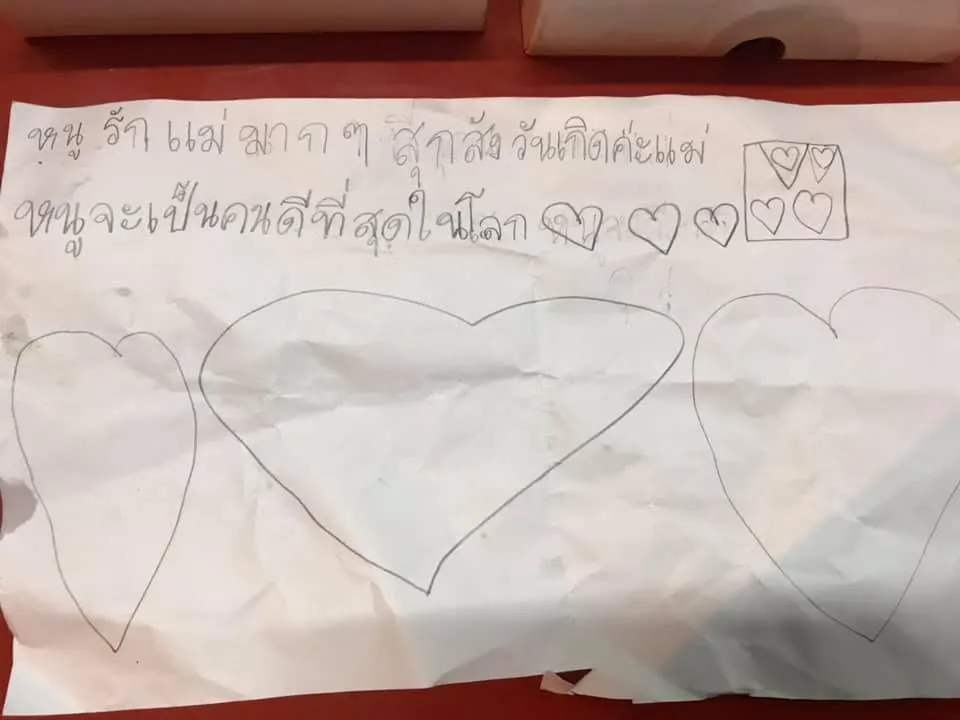 หนู รัก แม่ มาก ๆ สุกสังวันเกิดค่ะแม่
หนูจะเป็นคนดีที่สุดในโลก